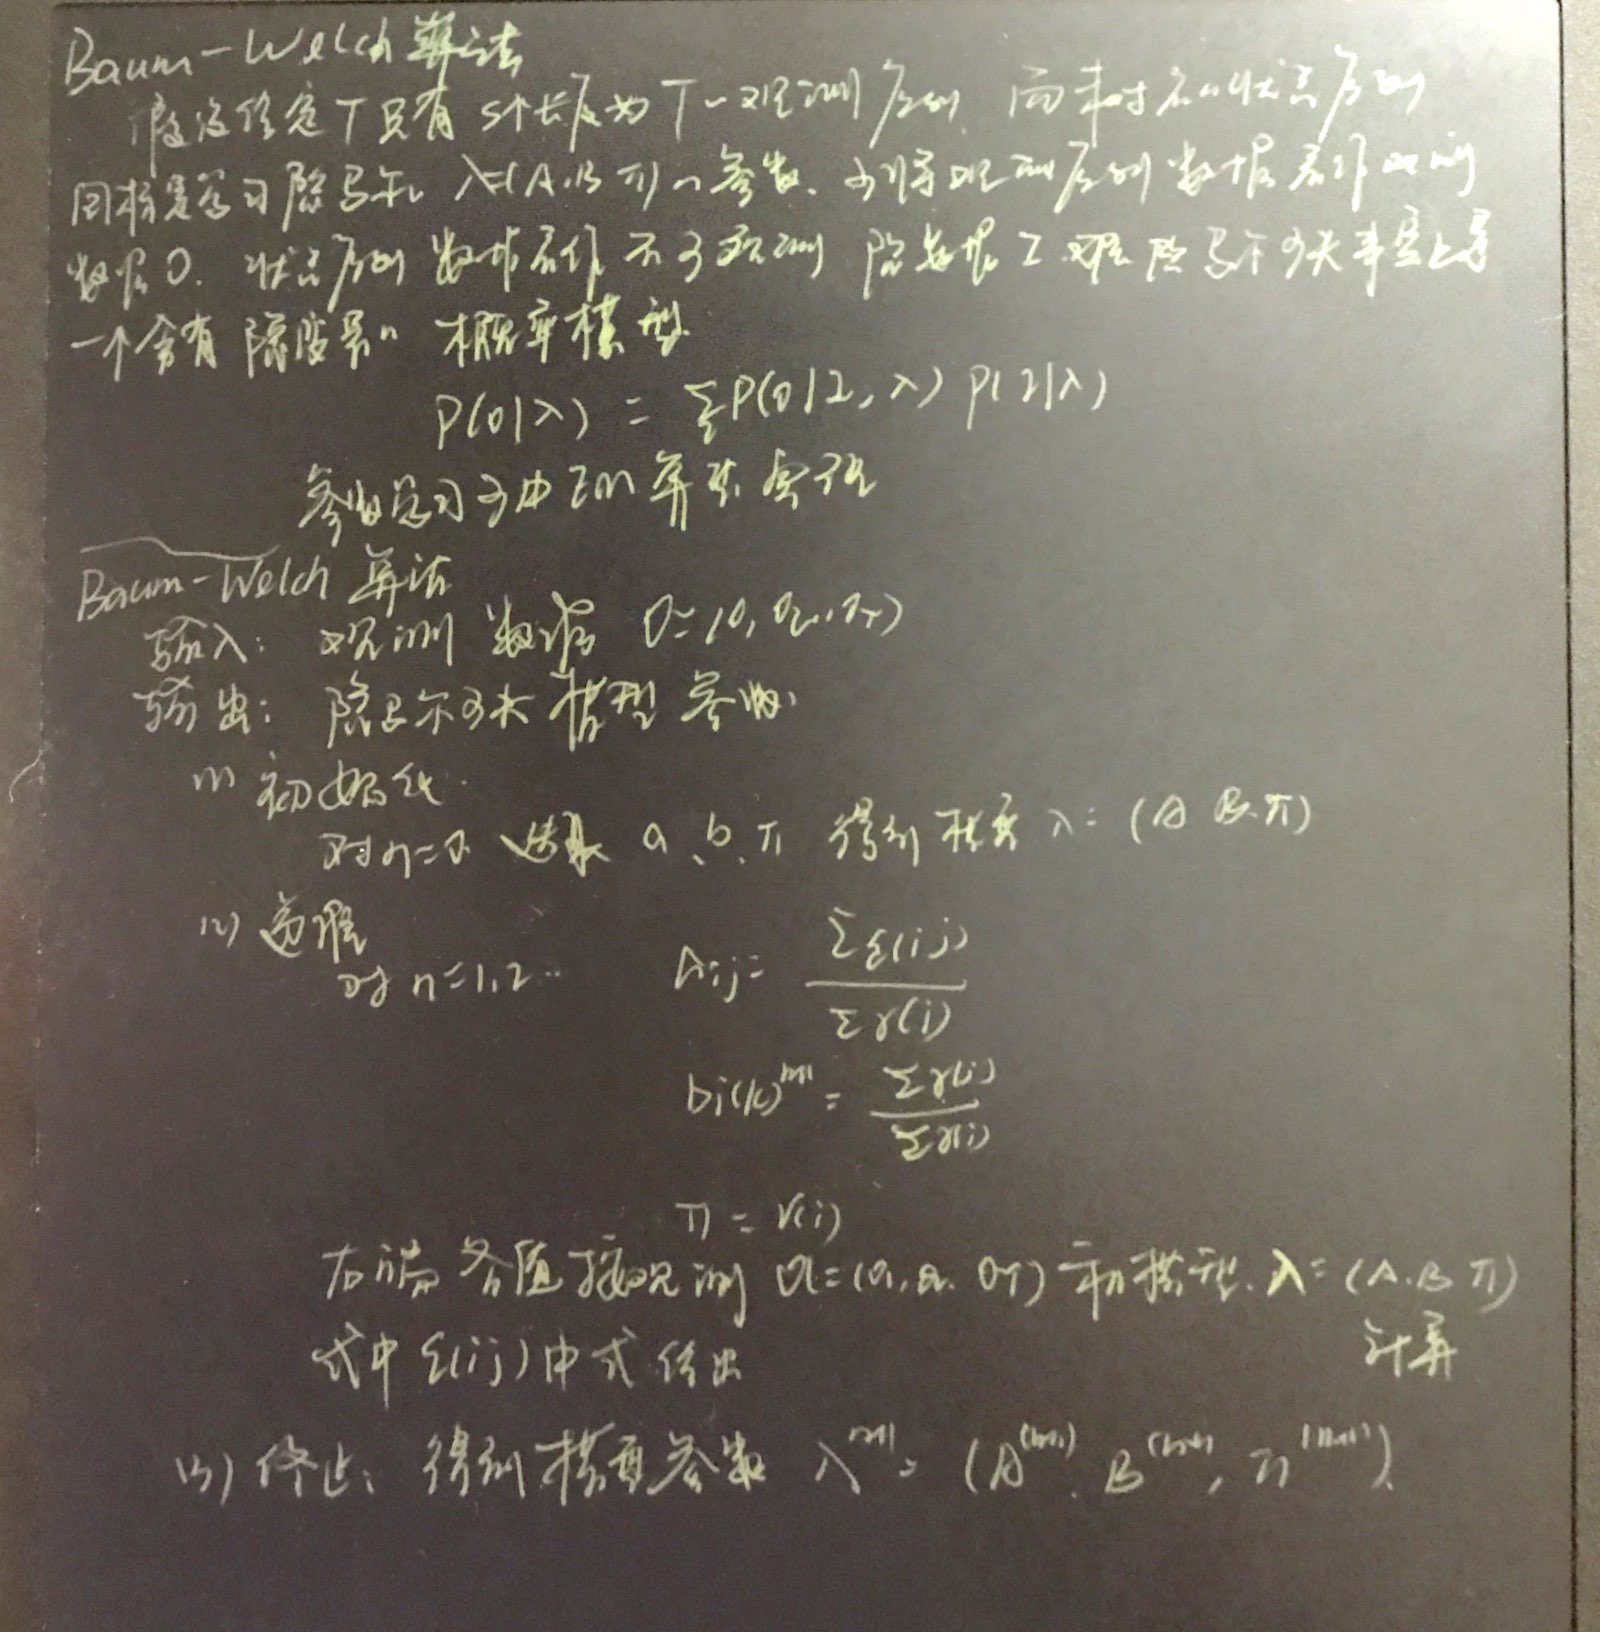 Baum-Welch 算法
假设给定T只有 S个长度为 T 观测序列 而未对应的状态序列
目标是学习隐马尔 λ=(A.B π)的参数. 可将观测序列数据看作观测
数据O. 状态序列数据看作不可观测隐数据I 隐马尔可夫事实上是
一个含有隐变量的 概率模型
P(O|λ) = ΣP(O|I, λ) P(I|λ)
参数学习可由EM算法实现
Baum-Welch 算法
输入: 观测数据 O=(O, O2, OT)
输出: 隐马尔可夫模型参数
(1) 初始化
对n=0. 选取 a、b、π 得到模型 λ = (A B.π)
(2) 递推
对 n=1,2 ·· Aij= Σξ(ij) / Σγ(i)
bj(k) = Σγ(i) / Σγ(i)
π = γ(i)
右端各值按观测 O=(O1, O2. OT) 和模型. λ = (A.B π)
计算
式中 ξ(ij) 由式给出
(3) 终止: 得到模型参数 λ = (A B , π )